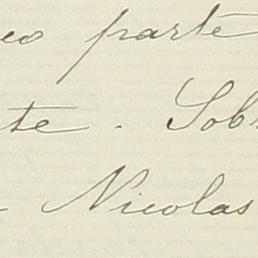 eo parte
te. Sob
Nicolas